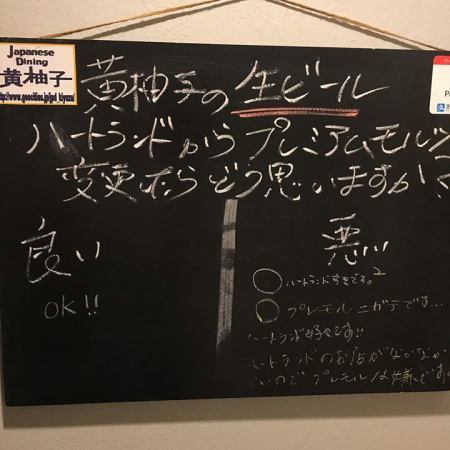 Japanese
Dining
黄柚子
黄柚子の生ビール
ハートランドからプレミアムモルツ
変更したらどう思いますか?
良い
OK!!
悪い
ハートランドすきです。2
プレモルニガテです...
ハートランド好きです!!
ハートランドのお店がなかなか
いのでプレモルは嫌です